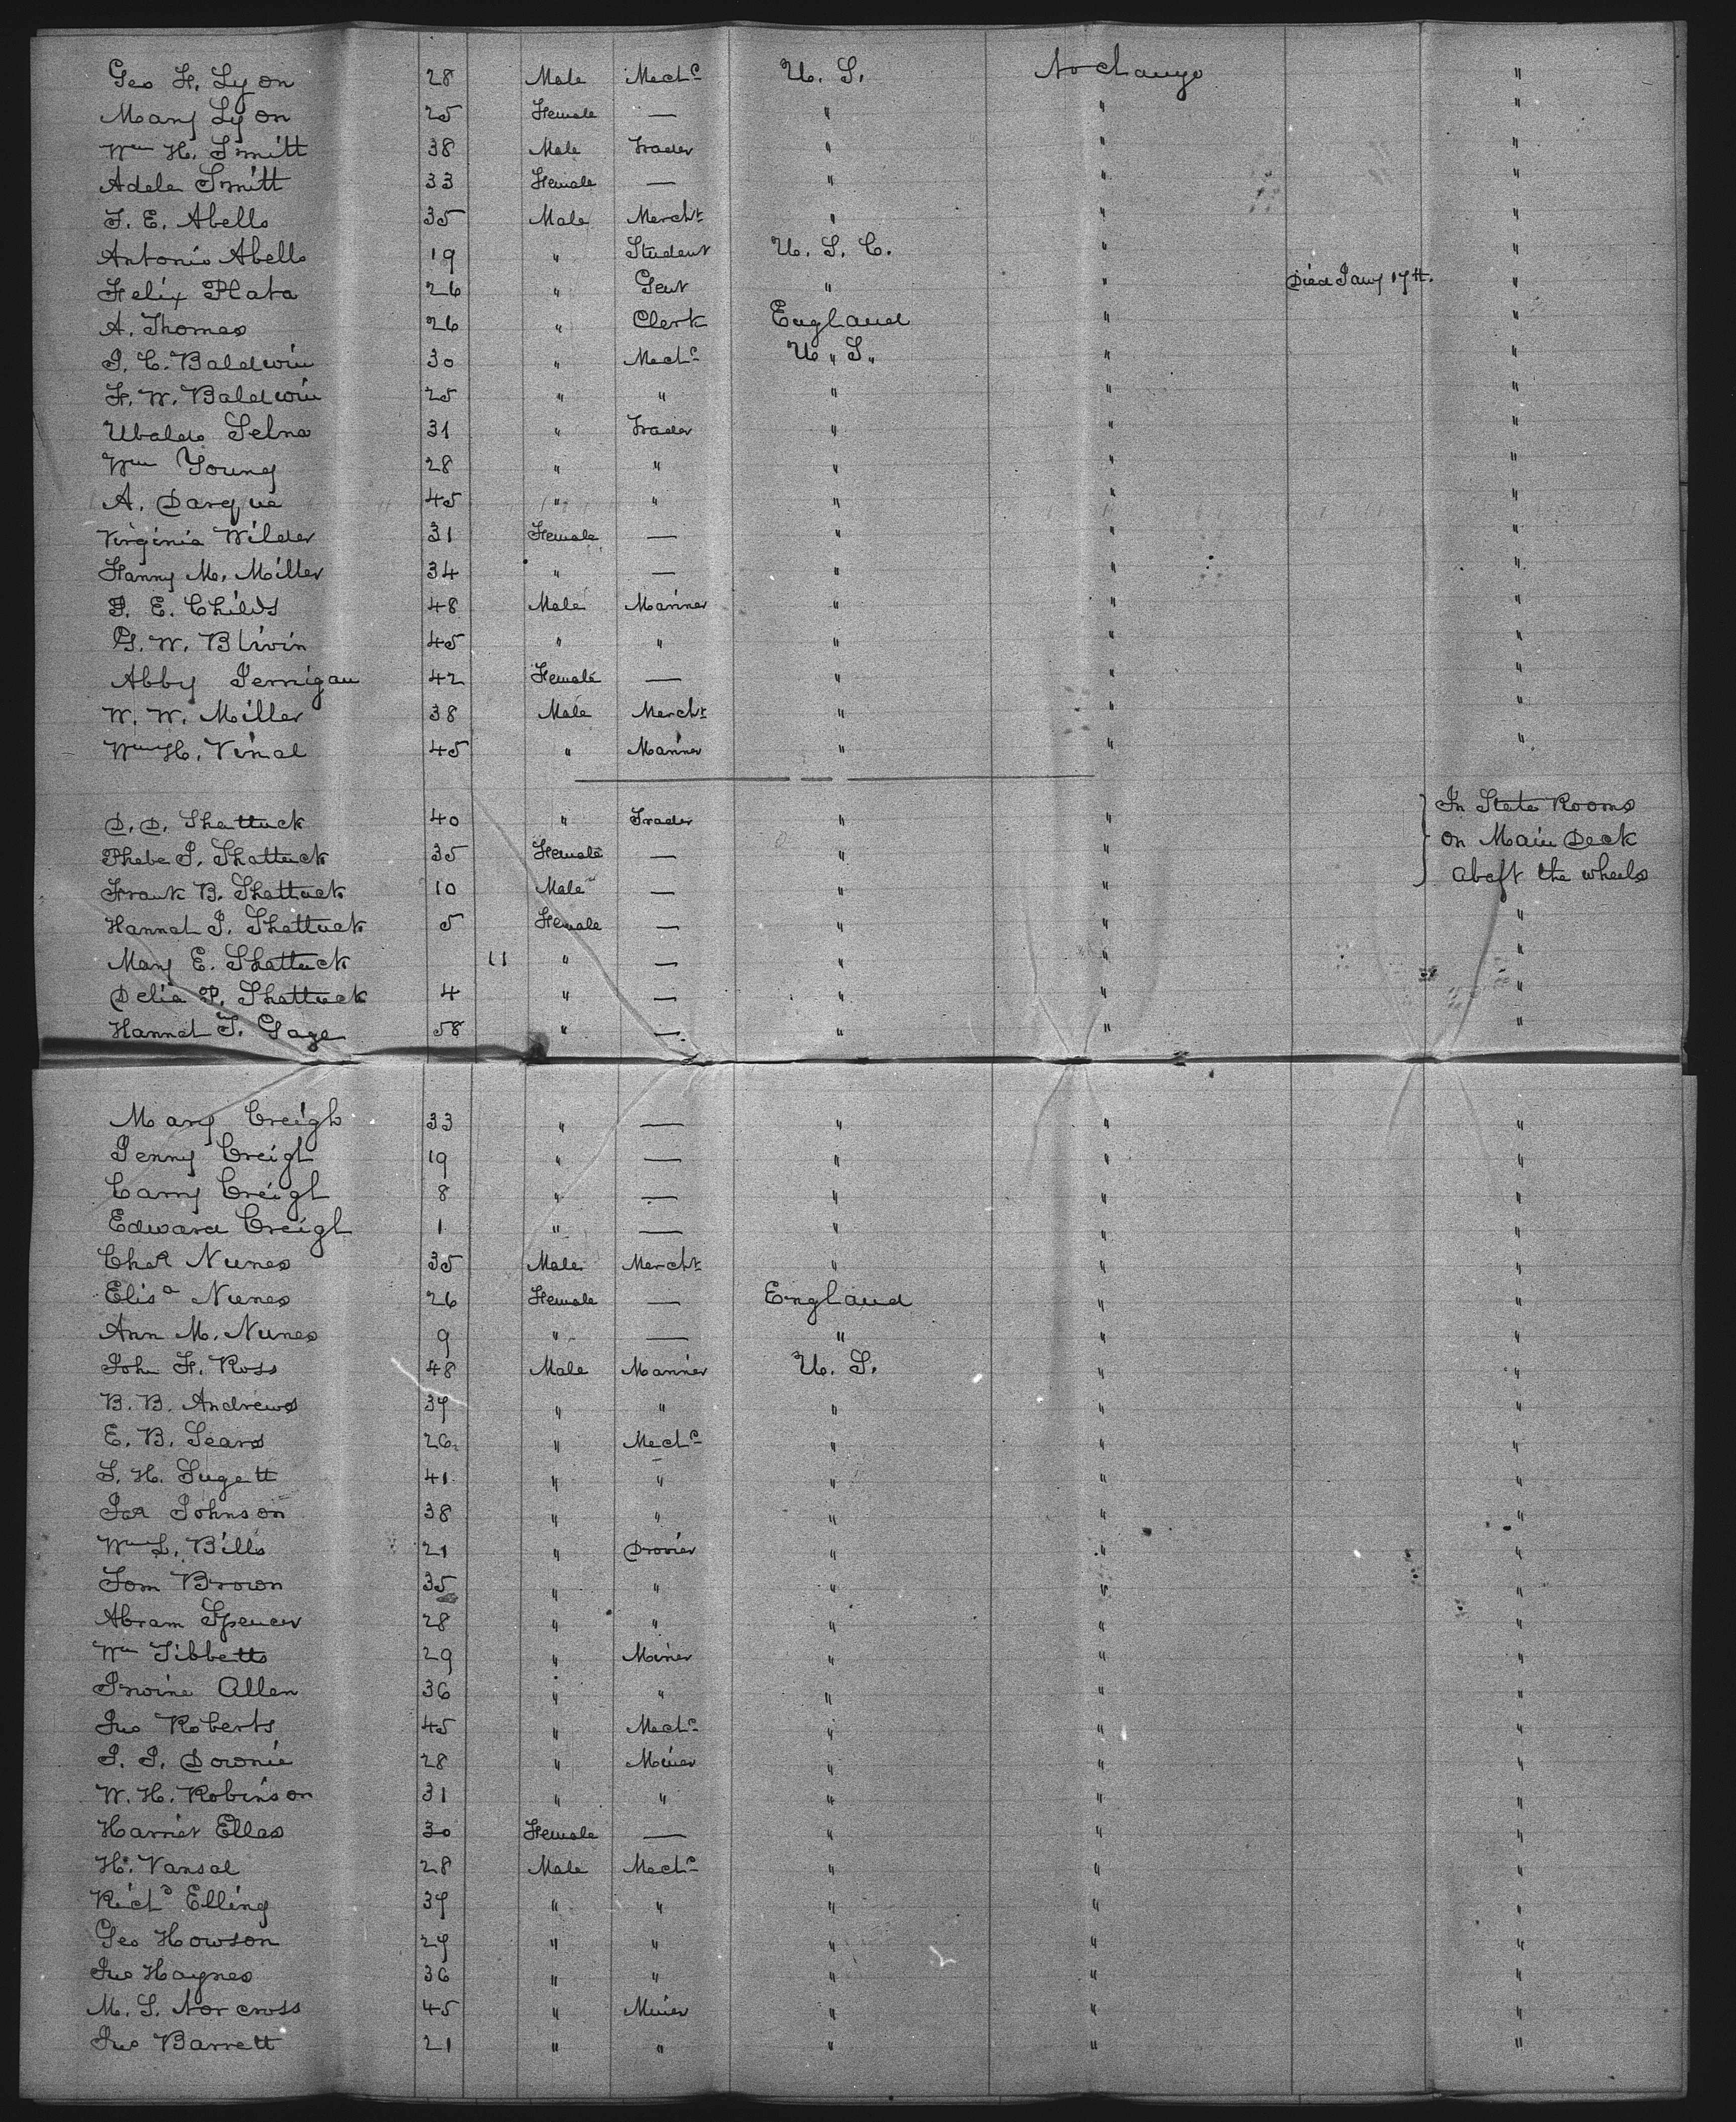 Geo F. Lyon 28 Male Mech.c U. S. No change "
Mary Lyon 25 Female — " " "
Wm H. Smitt 38 Male Trader " " "
Adele Smitt 33 Female — " " "
F. E. Abello 35 Male Mercht " " "
Antonio Abello 19 " Student U. S. C. " "
Felix Plata 26 " Gent " " Died Jany 17th. "
A. Thomas 26 " Clerk England " "
J. C. Baldwin 30 " Mech.c U. S. " "
F. W. Baldwin 25 " " " " "
Ubaldo Selna 31 " Trader " " "
Wm Young 28 " " " " "
A. Darque 45 " " " " "
Virginia Wilder 31 Female — " " "
Fanny M. Miller 34 " — " " "
J. E. Childs 48 Male Mariner " " "
G. W. Blivin 45 " " " " "
Abby Jernigan 42 Female — " " "
W. W. Miller 38 Male Mercht " " "
Wm H. Vinal 45 " Mariner " " "
D. D. Shattuck 40 " Trader " " In State Rooms
Phebe J. Shattuck 35 Female — " " on Main Deck
Frank B. Shattuck 10 Male — " " abaft the wheels
Hannah J. Shattuck 5 Female — " " "
Mary E. Shattuck 11 " — " " "
Delia P. Shattuck 4 " — " " "
Hannah T. Gage 58 " — " " "
Mary Creigh 33 " — " " "
Jenny Creigh 19 " — " " "
Carry Creigh 8 " — " " "
Edward Creigh 1 " — " " "
Chas Nunes 35 Male Mercht " " "
Elisa Nunes 26 Female — England " "
Ann M. Nunes 9 " — " " "
John F. Ross 48 Male Mariner U. S. " "
B. B. Andrews 37 " " " " "
E. B. Sears 26 " Mech.c " " "
S. H. Sugett 41 " " " " "
Jas Johnson 38 " " " " "
Wm L. Bills 21 " Drovier " " "
Tom Brown 35 " " " " "
Abram Spencer 28 " " " " "
Wm Tibbetts 29 " Miner " " "
Irvine Allen 36 " " " " "
Jno Roberts 45 " Mech.c " " "
J. J. Downie 28 " Miner " " "
W. H. Robinson 31 " " " " "
Harriet Elles 30 Female — " " "
H. Vansal 28 Male Mech.c " " "
Richd Elling 37 " " " " "
Geo Howson 27 " " " " "
Jno Haynes 36 " " " " "
M. S. Norcross 45 " Miner " " "
Jno Barrett 21 " " " " "